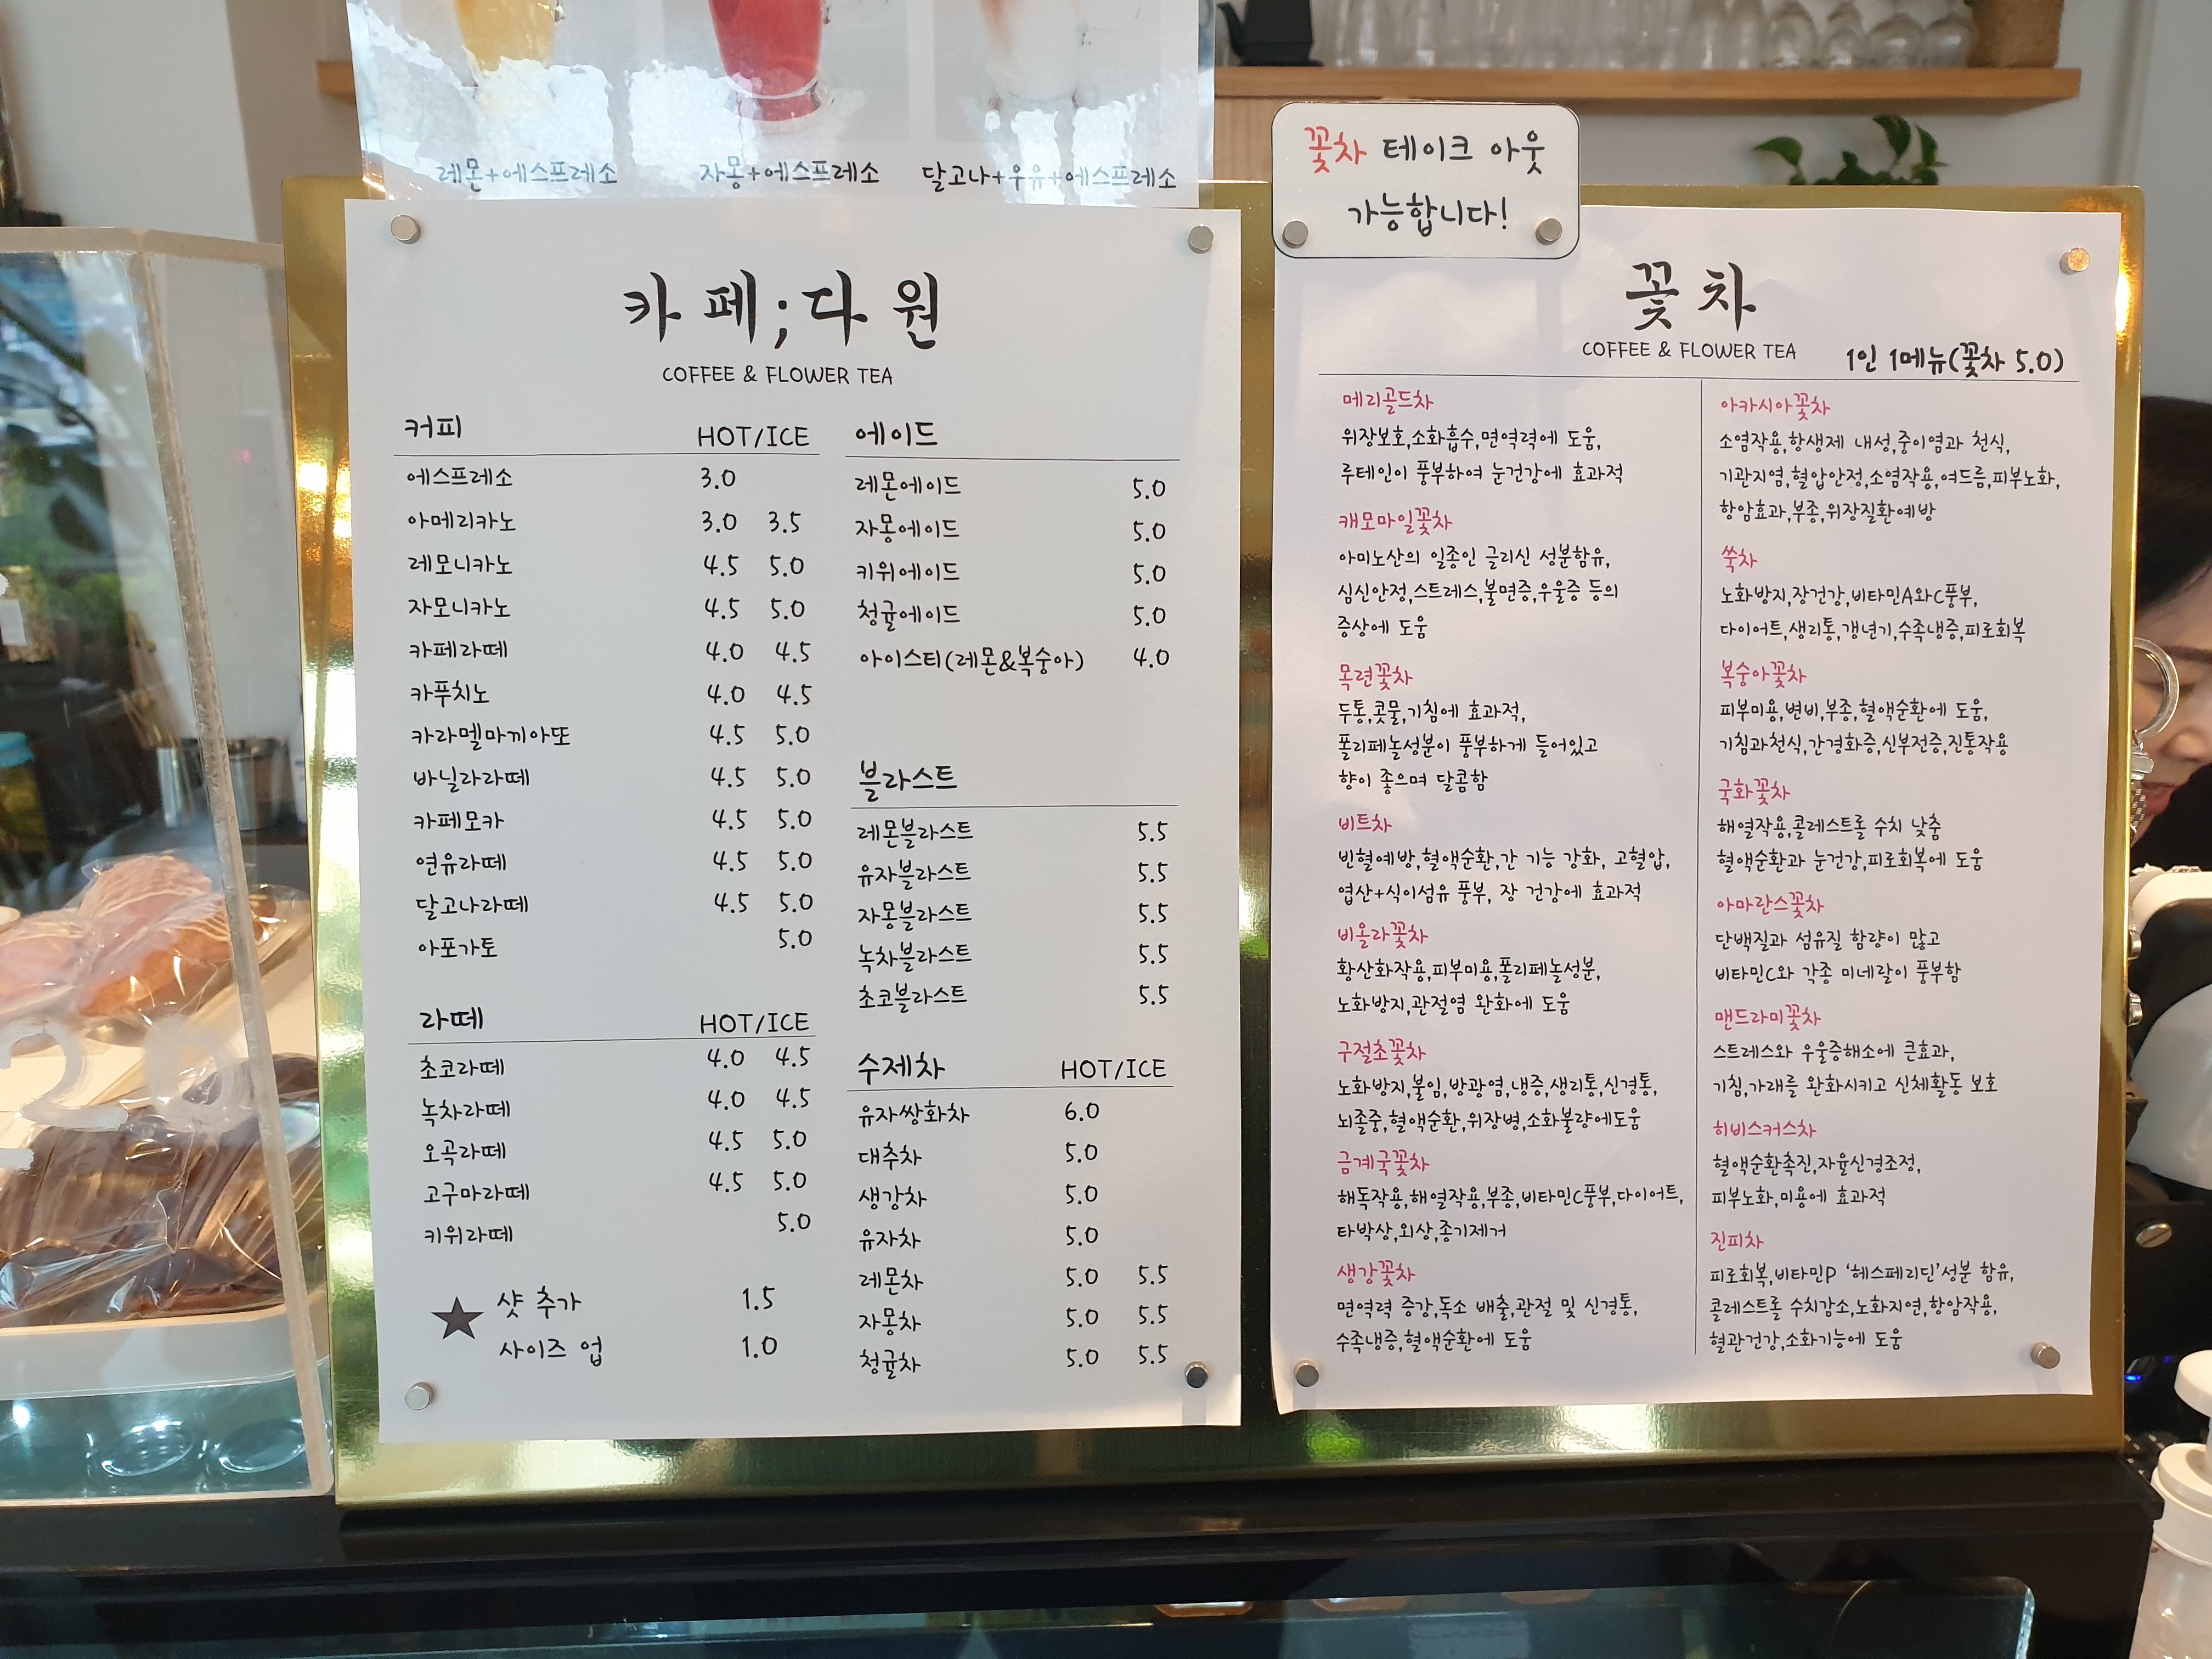 레몬+에스프레소
자몽+에스프레소
달고나+우유+에스프레소
카페;다원
COFFEE & FLOWER TEA
커피 HOT/ICE
에스프레소 3.0
아메리카노 3.0 3.5
레모니카노 4.5 5.0
자모니카노 4.5 5.0
카페라떼 4.0 4.5
카푸치노 4.0 4.5
카라멜마끼아또 4.5 5.0
바닐라라떼 4.5 5.0
카페모카 4.5 5.0
연유라떼 4.5 5.0
달고나라떼 4.5 5.0
아포가토 5.0
라떼 HOT/ICE
초코라떼 4.0 4.5
녹차라떼 4.0 4.5
오곡라떼 4.5 5.0
고구마라떼 4.5 5.0
키위라떼 5.0
★ 샷 추가 1.5
사이즈 업 1.0
에이드
레몬에이드 5.0
자몽에이드 5.0
키위에이드 5.0
청귤에이드 5.0
아이스티(레몬&복숭아) 4.0
블라스트
레몬블라스트 5.5
유자블라스트 5.5
자몽블라스트 5.5
녹차블라스트 5.5
초코블라스트 5.5
수제차 HOT/ICE
유자쌍화차 6.0
대추차 5.0
생강차 5.0
유자차 5.0
레몬차 5.0 5.5
자몽차 5.0 5.5
청귤차 5.0 5.5
꽃차 테이크 아웃
가능합니다!
꽃차
COFFEE & FLOWER TEA
1인 1메뉴(꽃차 5.0)
메리골드차
위장보호,소화흡수,면역력에 도움,
루테인이 풍부하여 눈건강에 효과적
캐모마일꽃차
아미노산의 일종인 글리신 성분함유,
심신안정,스트레스,불면증,우울증 등의
증상에 도움
목련꽃차
두통,콧물,기침에 효과적,
폴리페놀성분이 풍부하게 들어있고
향이 좋으며 달콤함
비트차
빈혈예방,혈액순환,간 기능 강화, 고혈압,
엽산+식이섬유 풍부, 장 건강에 효과적
비올라꽃차
황산화작용,피부미용,폴리페놀성분,
노화방지,관절염 완화에 도움
구절초꽃차
노화방지,불임,방광염,냉증,생리통,신경통,
뇌졸중,혈액순환,위장병,소화불량에도움
금계국꽃차
해독작용,해열작용,부종,비타민C풍부,다이어트,
타박상,외상,종기제거
생강꽃차
면역력 증강,독소 배출,관절 및 신경통,
수족냉증,혈액순환에 도움
아카시아꽃차
소염작용,항생제 내성,중이염과 천식,
기관지염,혈압안정,소염작용,여드름,피부노화,
항암효과,부종,위장질환예방
쑥차
노화방지,장건강,비타민A와C풍부,
다이어트,생리통,갱년기,수족냉증,피로회복
복숭아꽃차
피부미용,변비,부종,혈액순환에 도움,
기침과천식,간경화증,신부전증,진통작용
국화꽃차
해열작용,콜레스트롤 수치 낮춤
혈액순환과 눈건강,피로회복에 도움
아마란스꽃차
단백질과 섬유질 함량이 많고
비타민C와 각종 미네랄이 풍부함
맨드라미꽃차
스트레스와 우울증해소에 큰효과,
기침,가래를 완화시키고 신체활동 보호
히비스커스차
혈액순환촉진,자율신경조정,
피부노화,미용에 효과적
진피차
피로회복,비타민P '헤스페리딘'성분 함유,
콜레스트롤 수치감소,노화지연,항암작용,
혈관건강,소화기능에 도움